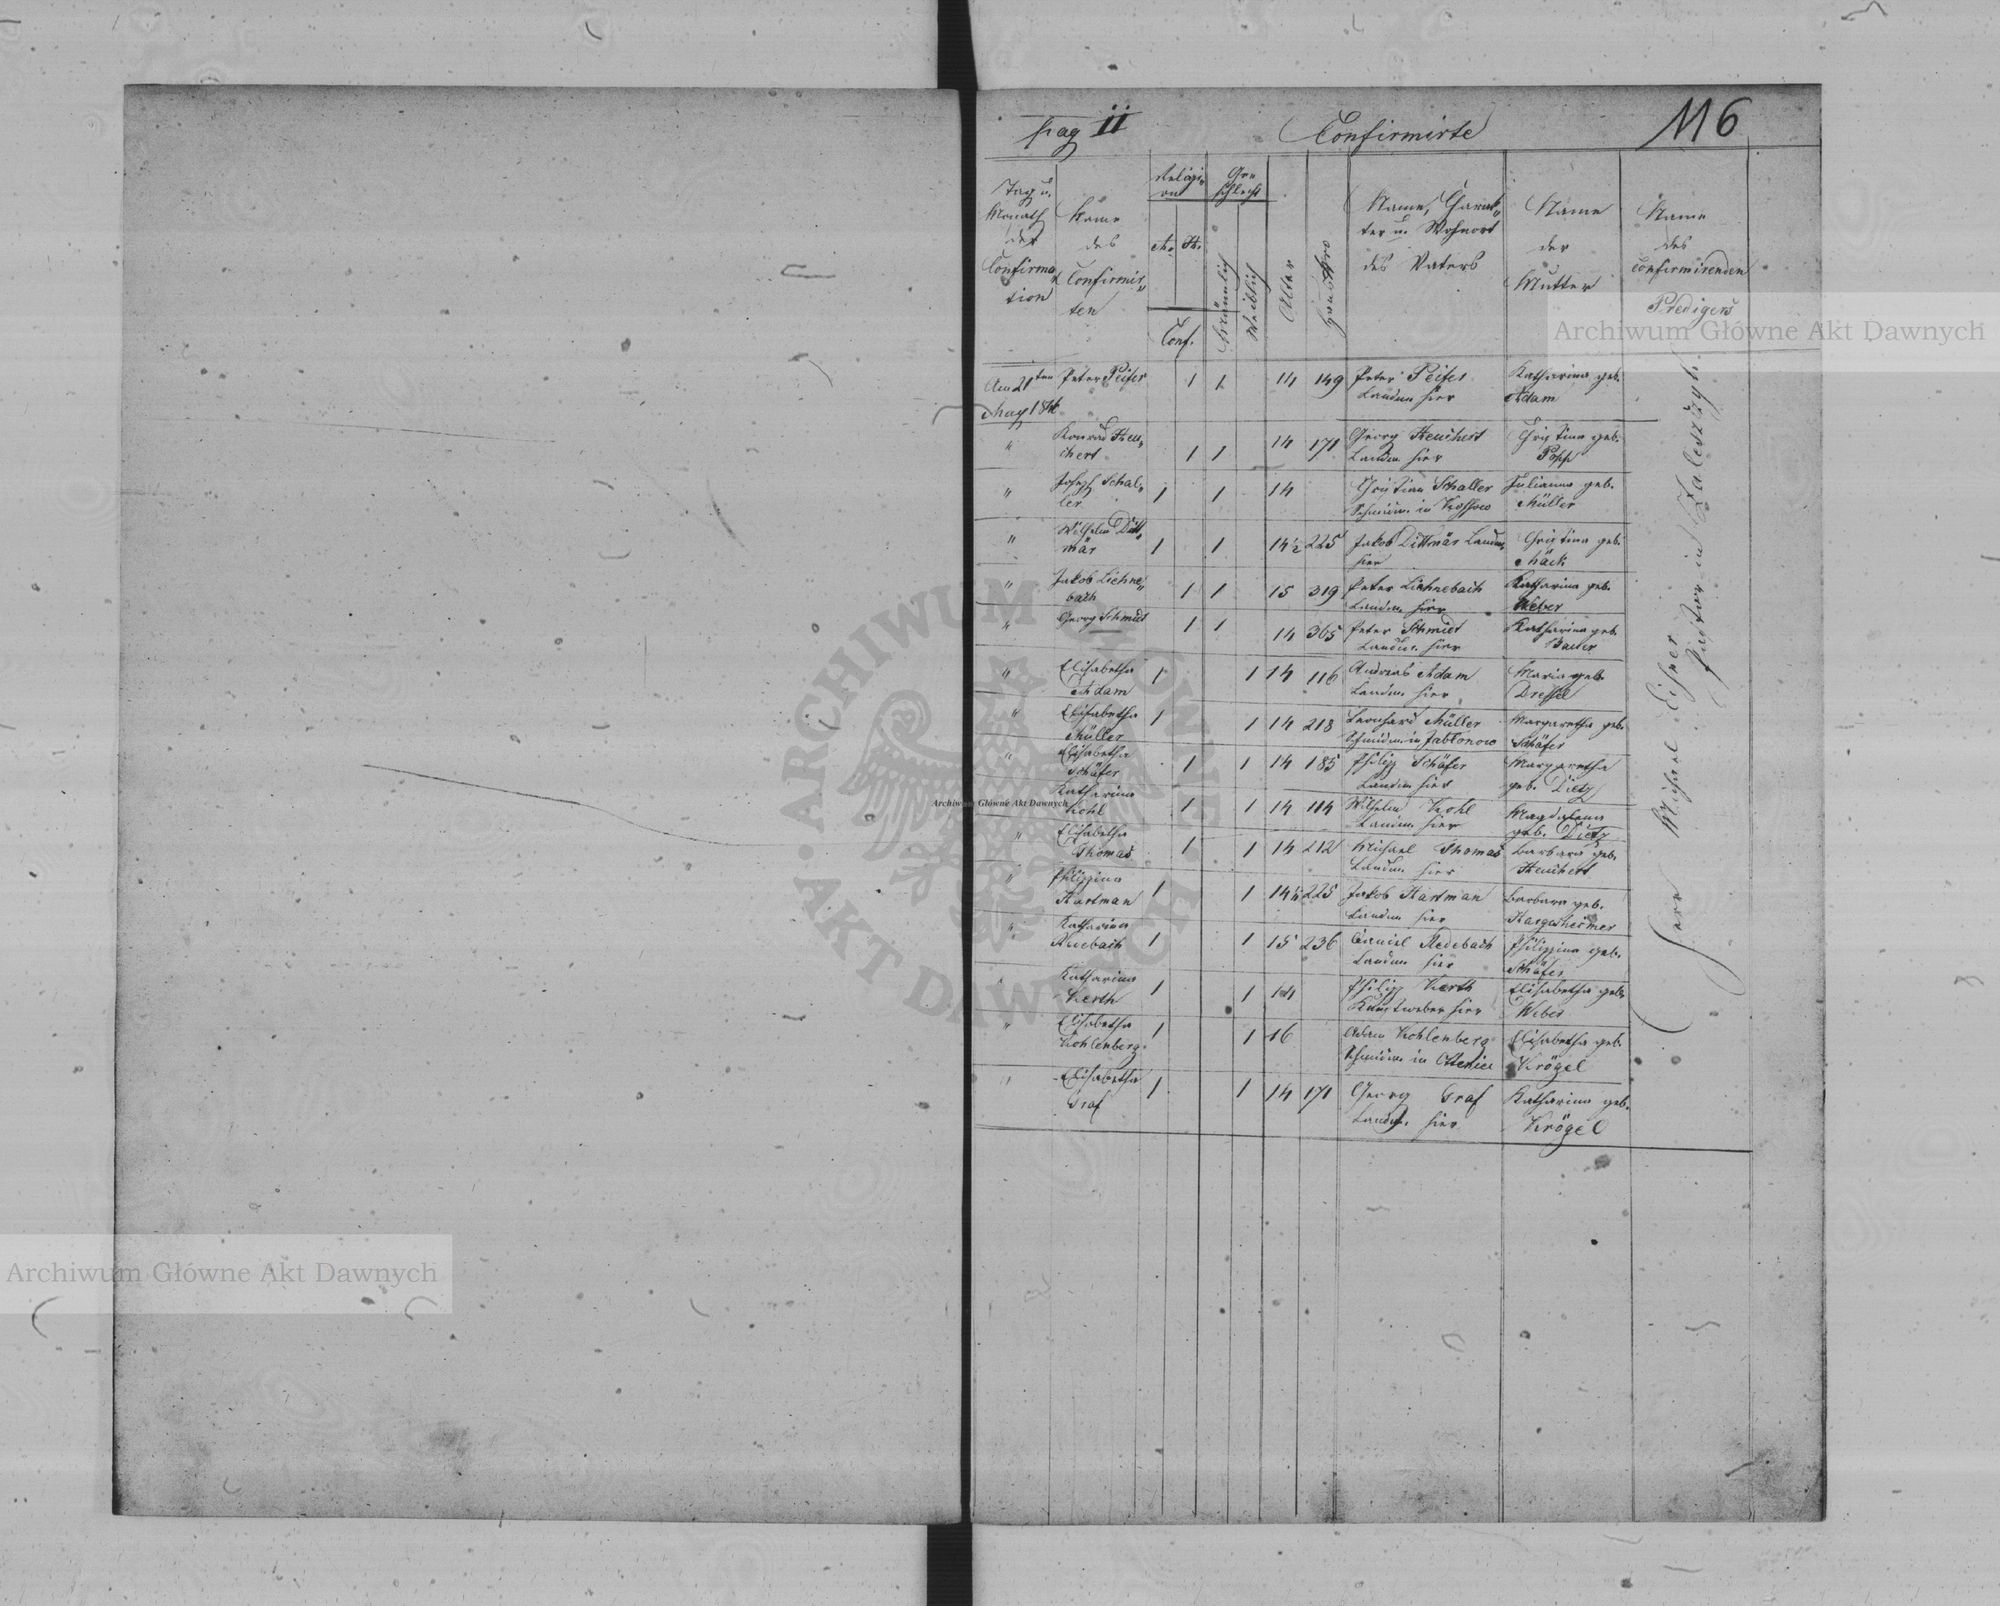 pag 11
Confirmirte
116
Tag u.
Monath
der
Confirma
tion
Name
des
Confirmir„
ten
Religi„
on
A. H.
Conf.
Ge„
schlecht
Männlich
Weiblich
Alter
Haus Nro
Name, Charak„
ter u. Wohnort
des Vaters
Name
der
Mutter
Name
des
Confirmirenden
Predigers
Am 21ten Peter Peifer 1 1 14 149 Peter Peifer Katharina geb.
May Landm. hier Adam
" Konrad Heu„ 1 1 14 171 Georg Heuchert Christina geb.
chert Landm. hier Popp
" Joseph Schal„ 1 1 14 Christian Schaller Julianna geb.
ler in Kossow Müller
" Wilhelm Ditt„ 1 1 14½ 225 Jakob Dittmär Landm. Christina geb.
mär hier Mäck
" Jakob Liehne„ 1 1 15 319 Peter Liehnebach Katharina geb.
bach Landm. hier Weber
" Georg Schmidt 1 1 14 365 Peter Schmidt Katharina geb.
Landm. hier
" Elisabetha 1 1 14 116 Andreas Adam Maria geb.
Adam Landm. hier Dressel
" Elisabetha 1 1 14 218 Leonhard Müller Margaretha geb.
Müller in Jablonow Schäfer
" Elisabetha 1 1 14 185 Philipp Schäfer Margaretha
Schäfer Landm. hier geb. Dietz
Katharina 1 1 14 114 Wilhelm Kohl Magdalena
Kohl Landm. hier geb. Dietz
" Elisabetha 1 1 14 212 Michael Thomas Barbara geb.
Thomas Landm. hier Heuchert
" Philippina 1 1 14½ 225 Jakob Hartman Barbara geb.
Hartman Landm. hier Hargesheimer
" Katharina 1 1 15 236 Daniel Redebach Philippina geb.
Landm. hier Schäfer
" Katharina 1 1 14 Philipp Kerth Elisabetha geb.
Kerth hier Weber
" Elisabetha 1 1 16 Adam Kohlenberg Elisabetha geb.
Kohlenberg. in Krögel
" Elisabetha 1 1 14 171 Georg Graf Katharina geb.
Graf Landm. hier Krögel
Herr Michael Eisner
Pastor in Zaleszczyk.
Archiwum Główne Akt Dawnych
Archiwum Główne Akt Dawnych
Archiwum Główne Akt Dawnych
ARCHIWUM GŁÓWNE • AKT DAWNYCH •